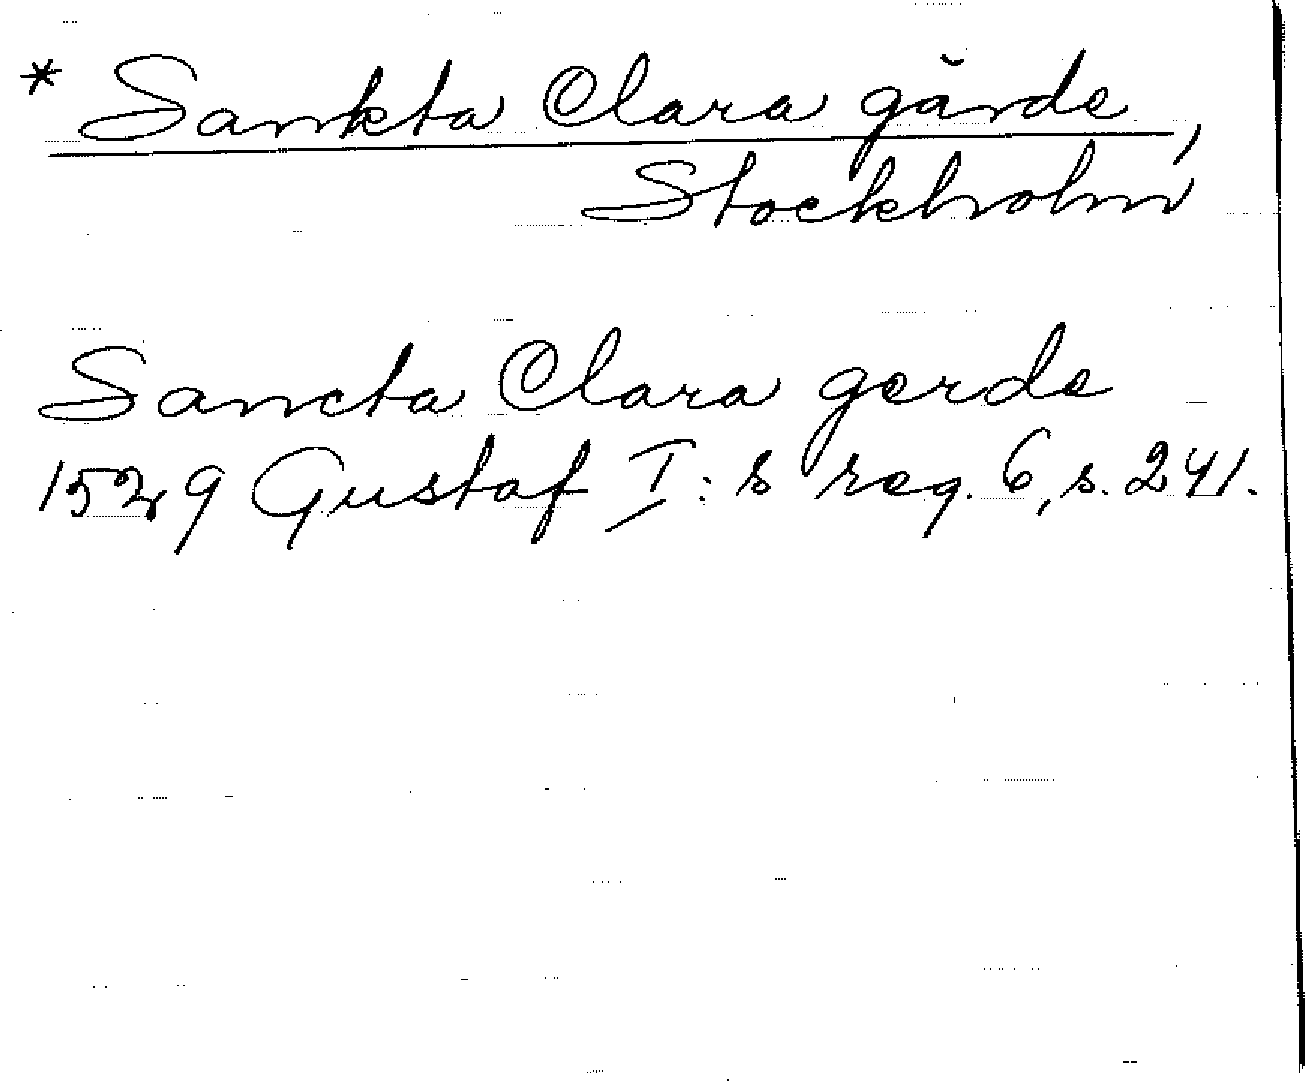 * Sankta Clara gärde,
Stockholm
Sancta Clara gerde
1529 Gustaf I:s reg. 6, s. 241.